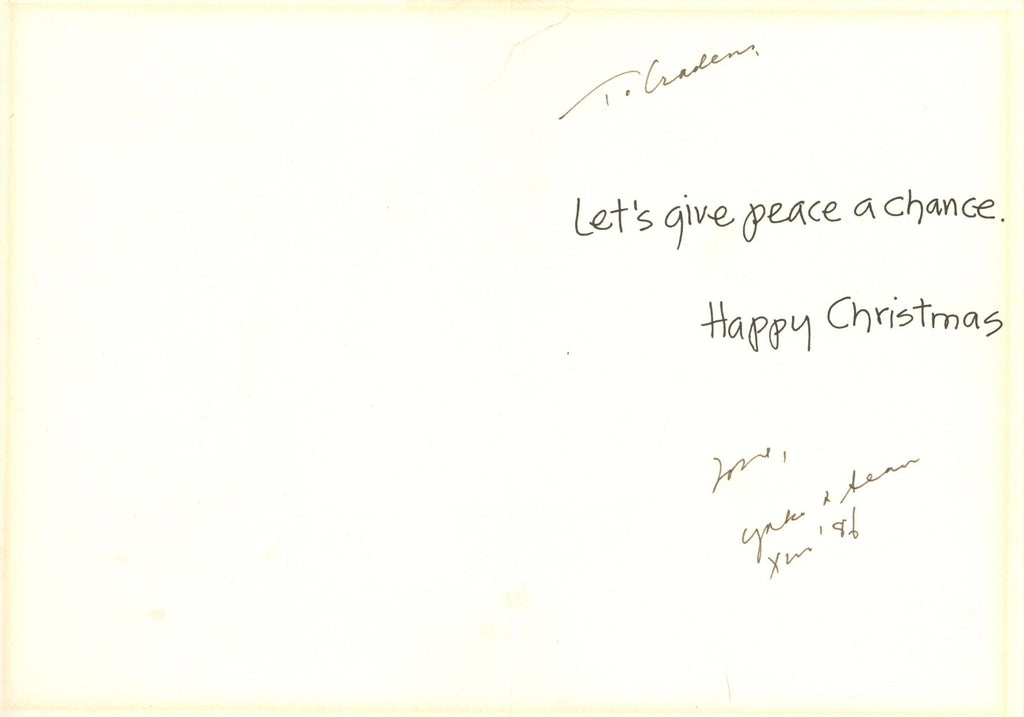 To
Let's give peace a chance.
Happy Christmas
love,
yoko & sean
Xmas '86